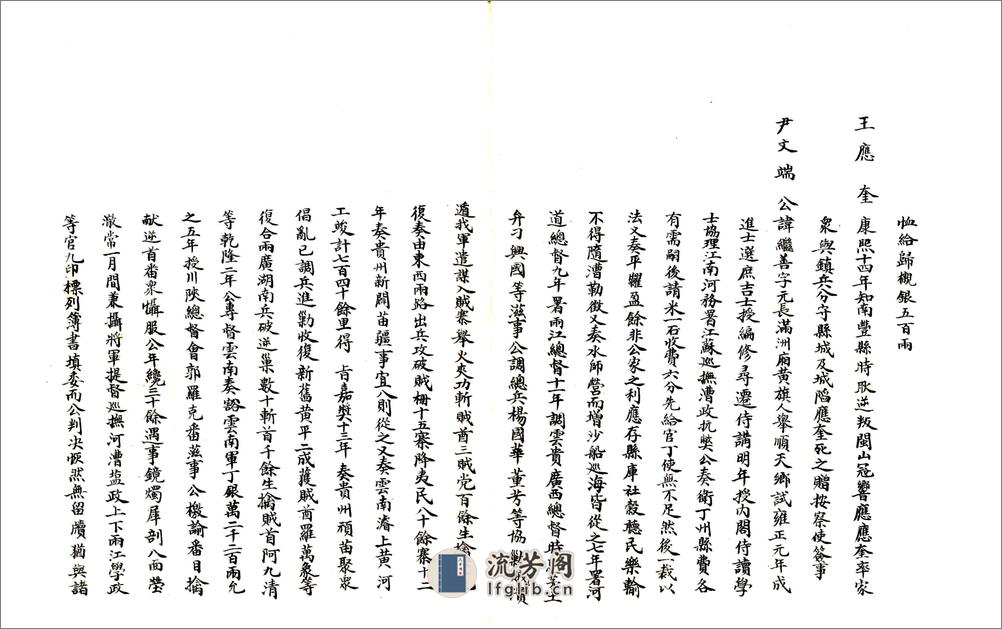 恤給歸櫬銀五百兩
王應奎 康熙十四年知南豐縣時耿逆叛閩山冦響應應奎率家
衆與鎮兵分守縣城及城陷應奎死之贈按察使簽事
尹文端 公諱繼善字元長滿洲廂黃旗人舉順天鄉試雍正元年成
進士選庶吉士授編修尋遷侍講明年授內閣侍讀學
士協理江南河務署江蘇巡撫漕政抗獘公奏衛丁州縣費各
有需嗣後請米一石收費六分先給官丁使無不足然後一裁以
法又奏平糶盈餘非公家之利應存縣庫社穀聽民樂輸
不得隨漕勒徵又奏水師營而增沙船巡海皆從之七年署河
道總督九年署兩江總督十一年調雲貴廣西總督時
弁刁興國等滋事公調總兵楊國華董芳等協
遁我軍進謀入賊寨舉火夾功斬賊酋三賊党百餘生
復奏由東西兩路出兵攻破賊柵十五寨降夷民八十餘寨十二
年奏貴州新闢苗疆一事宜八則從之又奏雲南濬上黃河
工竣計七百四十餘里得旨嘉獎十三年奏貴州頑苗聚衆
倡亂已調兵進勦收復新舊黃平二城獲賊首羅萬象等
復合兩廣湖南兵破逆巢數十斬首千餘生擒賊首阿九清
等乾隆二年公專督雲南奏豁雲南軍丁銀萬二千二百兩九
之五年授川陝總督會郭羅克番滋事公檄諭番目擒
献逆首畨衆懾服公年纔三十餘遇事鏡燭犀剖八面瑩
澈常一月間兼攝將軍提督巡撫河漕盐政上下兩江學政
等官九印標列簿書填委而公判决恢然無留牘猶與諸
流芳阁
lfglib.cn